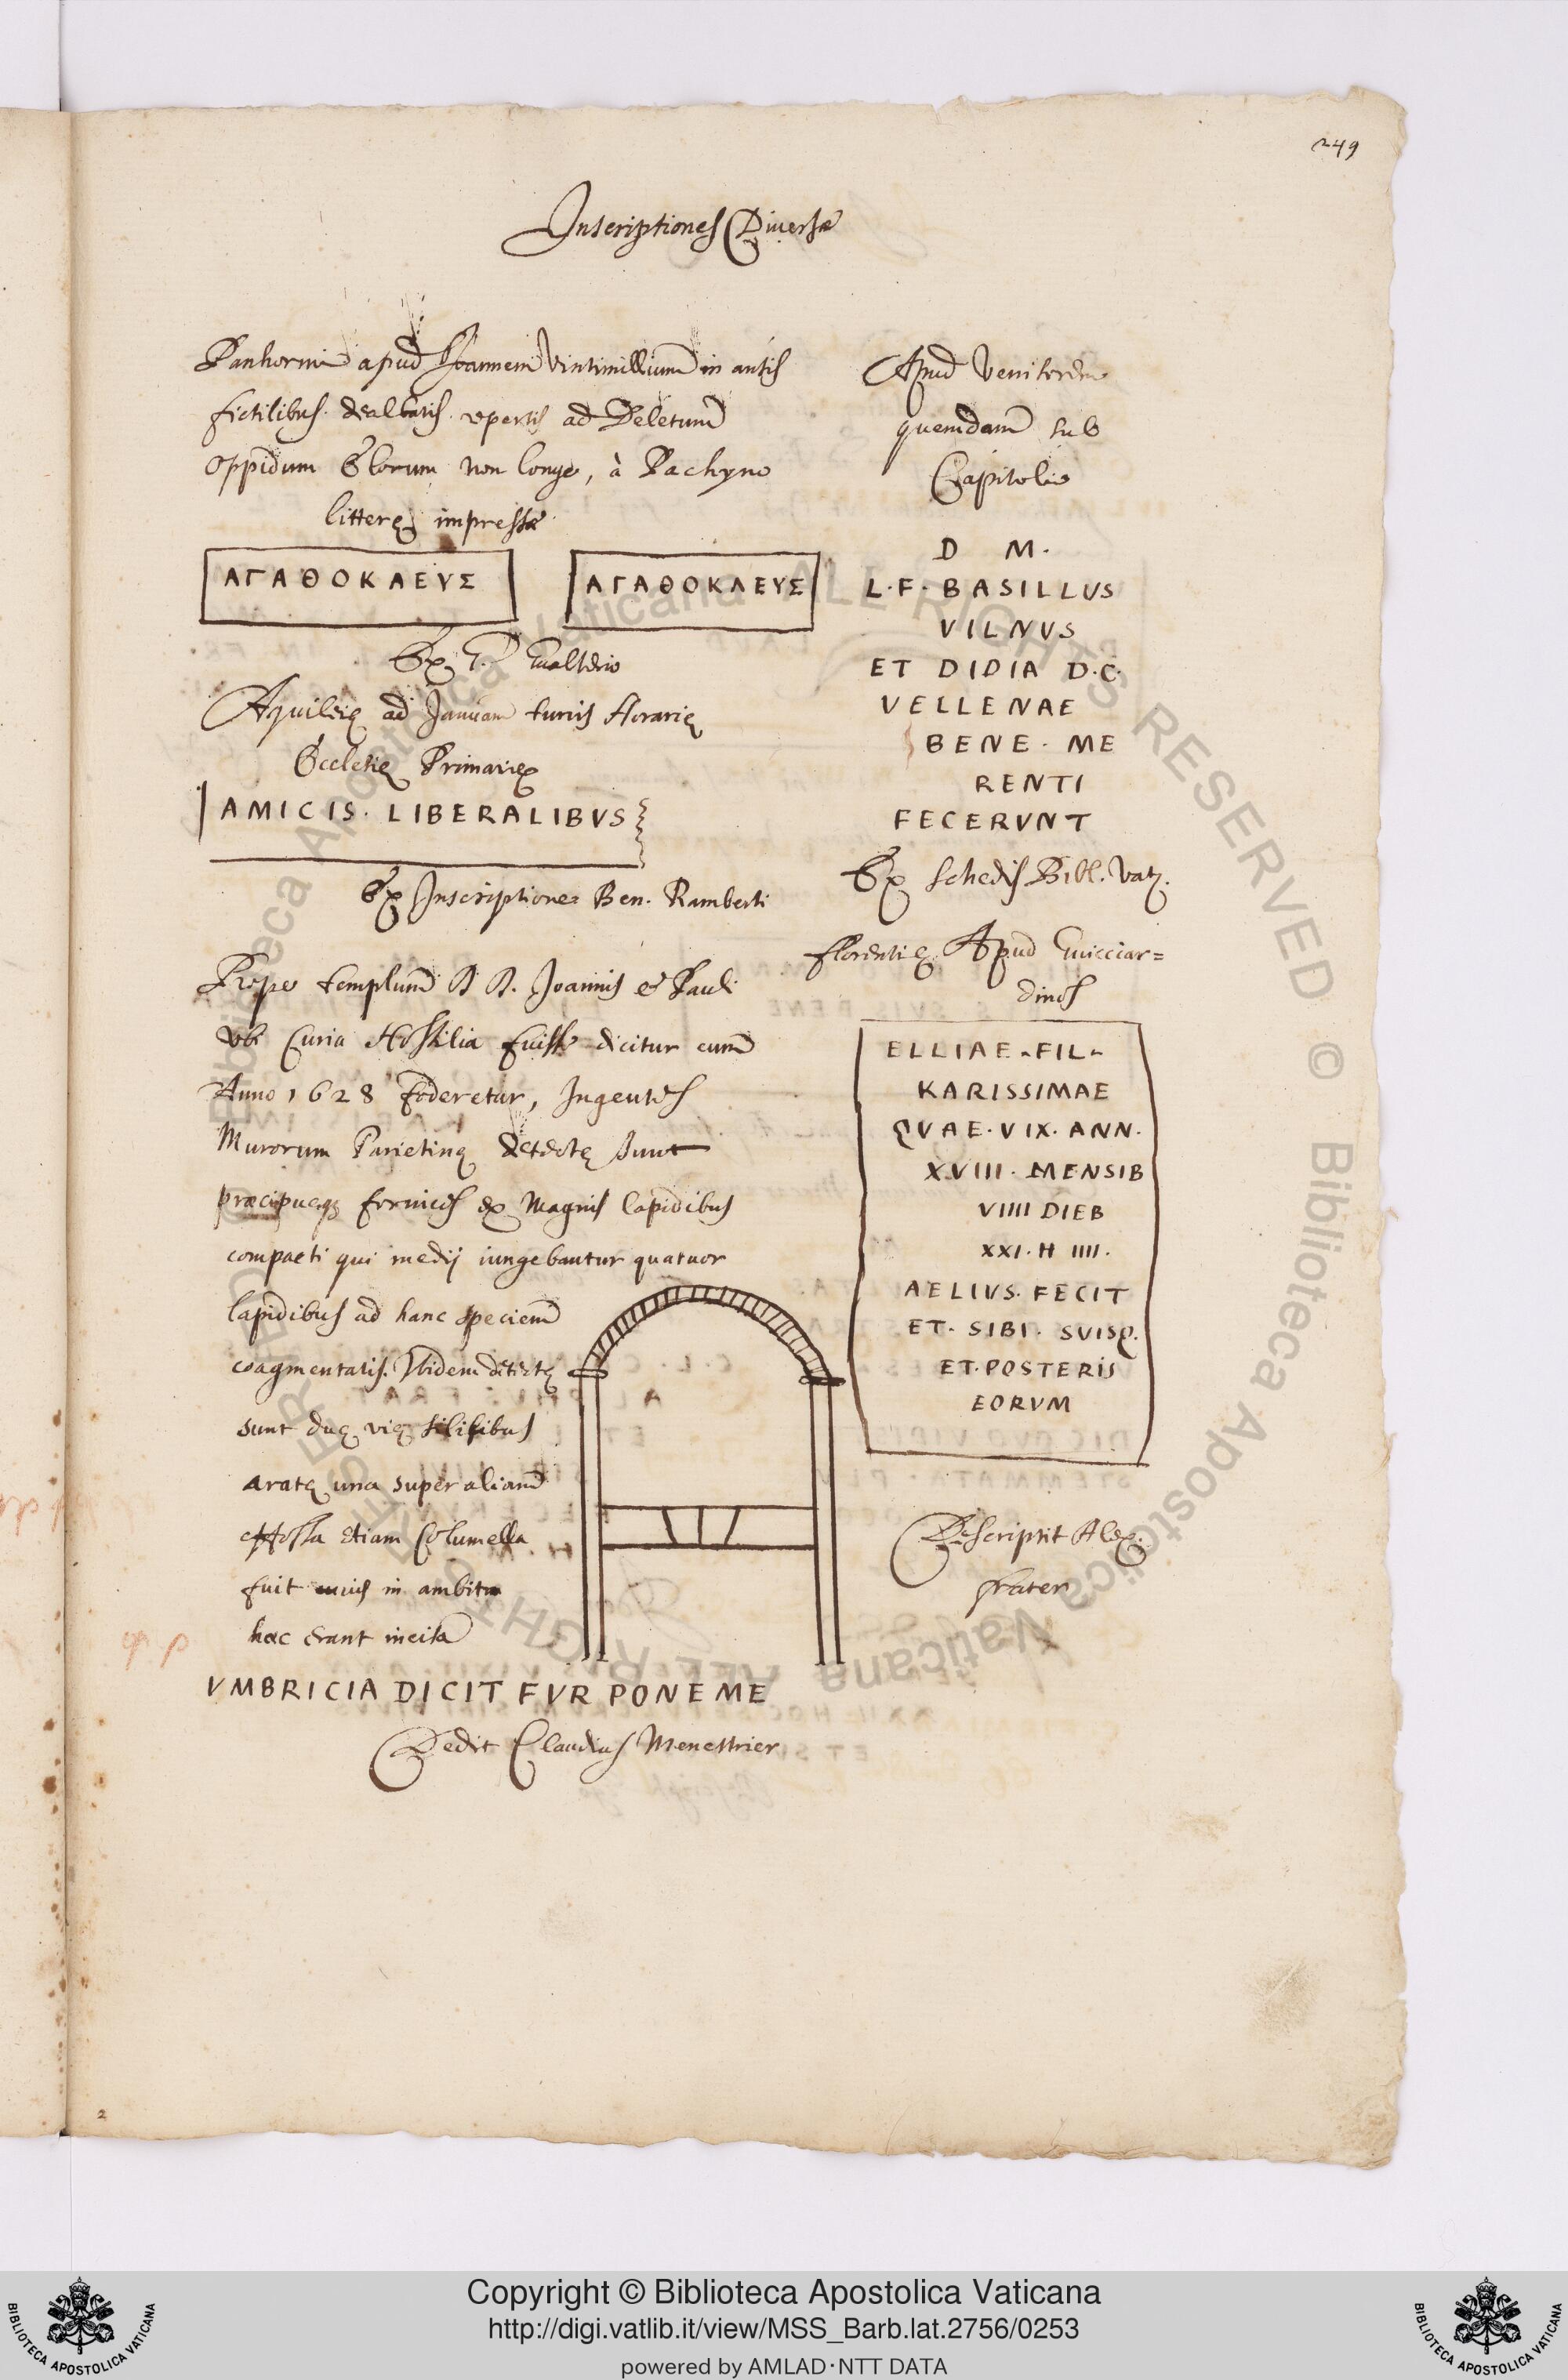 249
Inscriptiones Diversæ
Panhormi apud Joannem Vintimillium in antis
fictilibus dealbatis repertis ad Deletum
oppidum Elorum non longe, à Pachyno
litterę impressæ
ΑΓΑΘΟΚΛΕΥΣ
ΑΓΑΘΟΚΛΕΥΣ
Ex G. Gualterio
Aquileię ad Januam turris Horarię
Ecclesię Primarię
AMICIS. LIBERALIBVS
Ex Inscriptione Ben. Ramberti
Prope templum B B. Joannis & Pauli
ubi Curia Hostilia fuisse dicitur cum
Anno 1628 foderetur, Ingentes
Murorum Parietinę detectę sunt
præcipueq; fornices ex Magnis lapidibus
compacti qui medij iungebantur quatuor
lapidibus ad hanc speciem
coagmentatis. Ibidem detectę
sunt duę vię silicibus
aratę una super aliam
effossa etiam Columella
fuit cuius in ambitu
hæc erant incisa
VMBRICIA DICIT FVR PONE ME
Dedit Claudius Menestrier
Apud
quemdam sub
Capitolio
D M.
L. F. BASILLUS
VILNVS
ET DIDIA D. C.
VELLENAE
BENE. ME
RENTI
FECERVNT
Ex schedis Bibl. Vat.
Florentię Apud Guicciar=
dinos
ELLIAE. FIL.
KARISSIMAE
QVAE. VIX. ANN.
XVIII. MENSIB
VIIII DIEB
XXI. H IIII.
AELIVS. FECIT
ET. SIBI. SVISQ.
ET. POSTERIS
EORVM
Descripsit Alex.
frater
2
Copyright © Biblioteca Apostolica Vaticana
http://digi.vatlib.it/view/MSS_Barb.lat.2756/0253
powered by AMLAD·NTT DATA
BIBLIOTECA APOSTOLICA VATICANA
BIBLIOTECA APOSTOLICA VATICANA